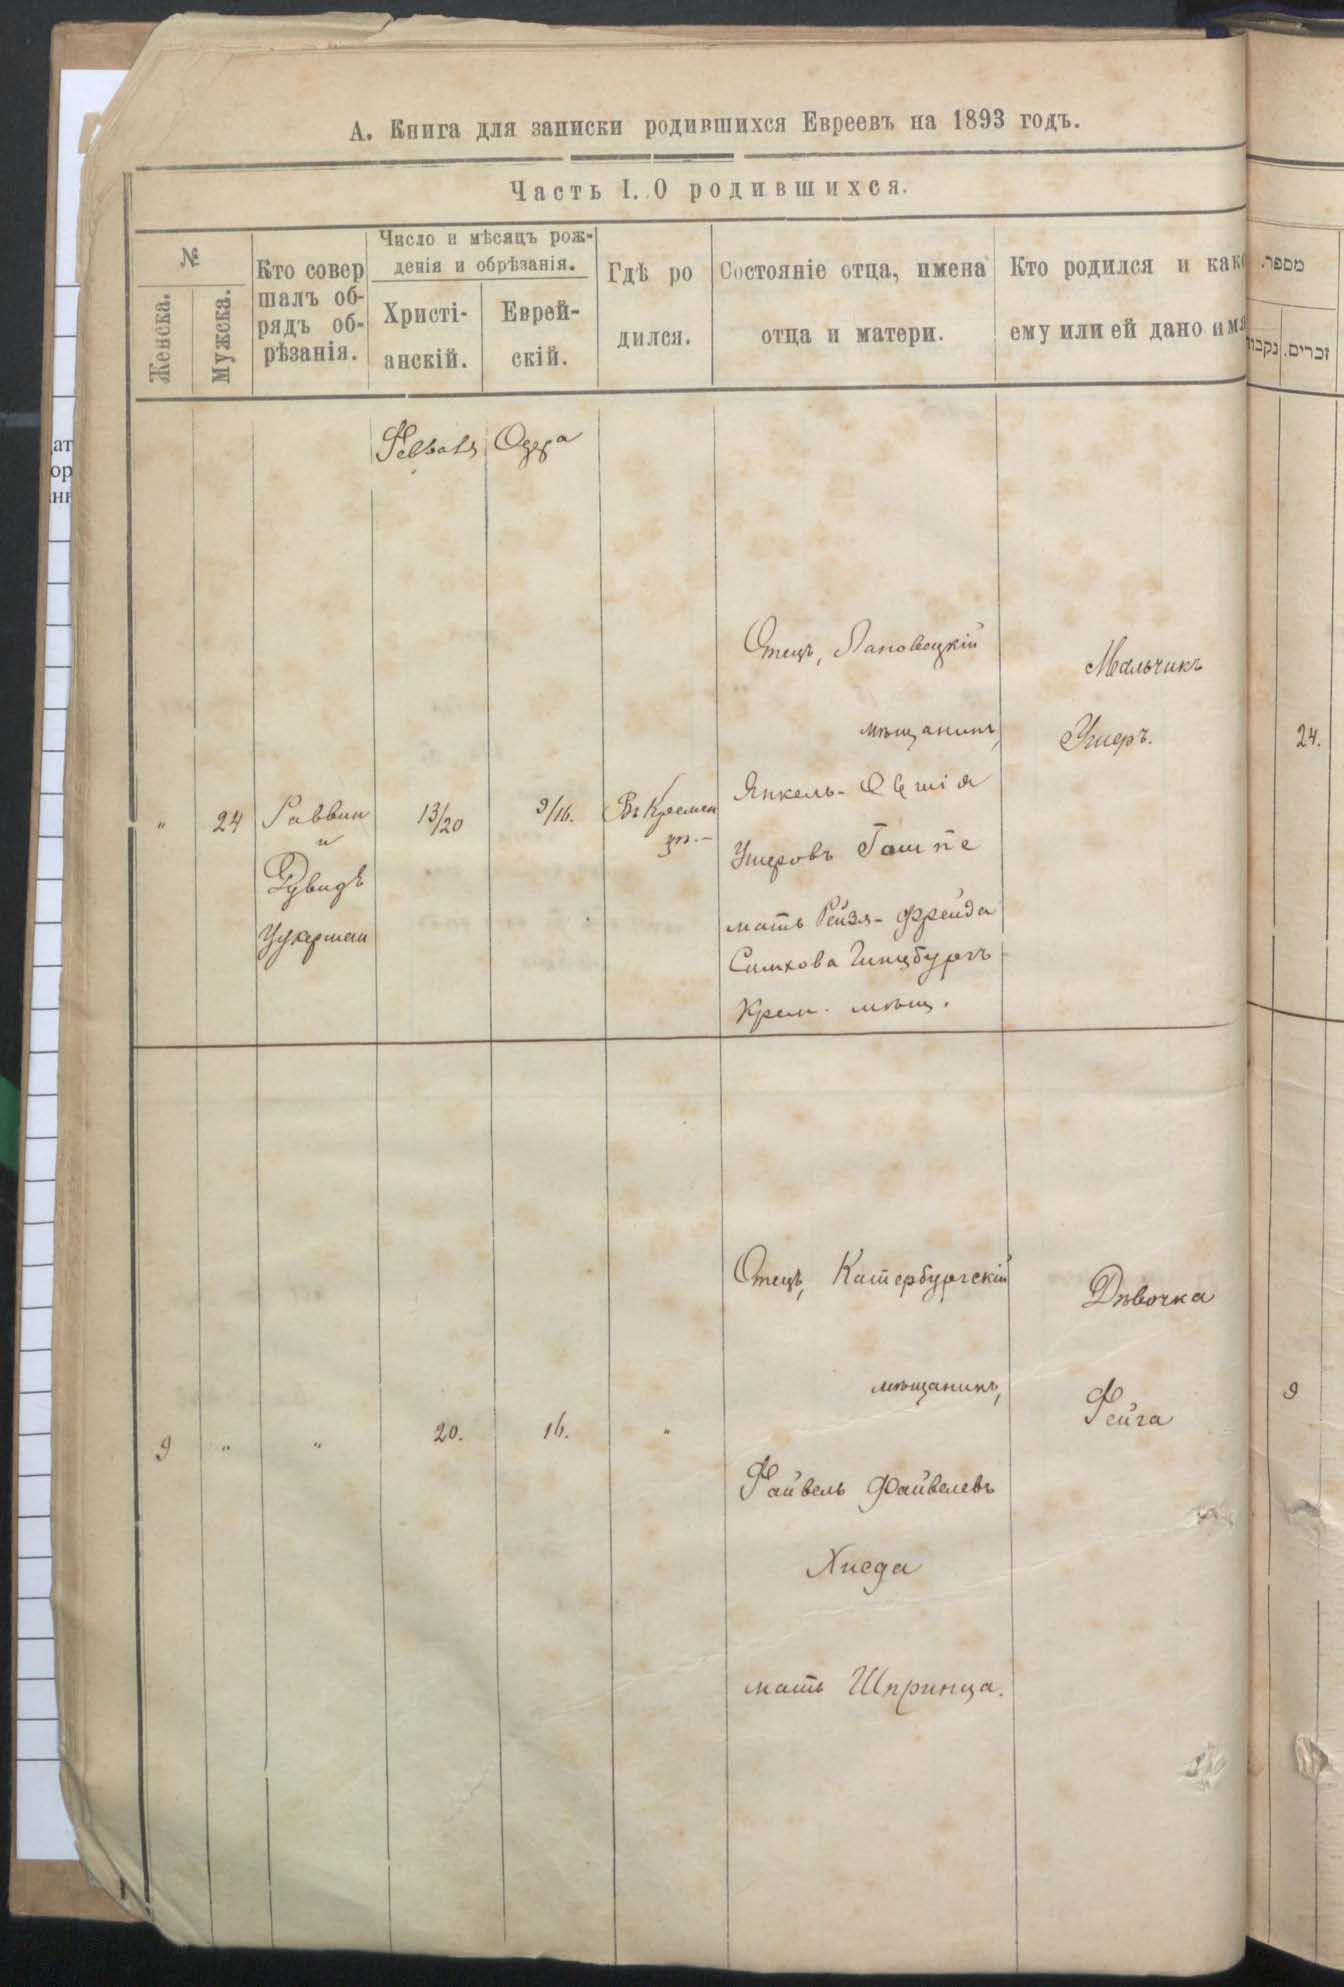 А. Книга для записки родившихся Евреевъ на 1893 годъ.
Часть I. О родившихся.
№
Женска.
Мужска.
Кто совер
шалъ об-
рядъ об-
рѣзанія.
Число и мѣсяцъ рож-
денія и обрѣзанія.
Христі-
анскій.
Еврей-
скій.
Гдѣ ро
дился.
Состояніе отца, имена
отца и матери.
Кто родился и како
ему или ей дано имя
מספר.
זכרים.
נקבות
Февраля
Одера
"
24
Раввин
и
Дувидъ
Цукерман
13/20
9/16.
Въ Кремен
цѣ.-
Отецъ, Лановецкій
мѣщанинъ,
Янкель-
Ушеровъ
мать Рейзя-Фрейда
Симхова Гинцбургъ
Крем. мѣщ.
Мальчикъ
Ушеръ.
24.
9
"
"
20.
16.
"
Отецъ, Катербургскій
мѣщанинъ,
Файвель Файвелевъ
мать Шпринца.
Дѣвочка
Фейга
9